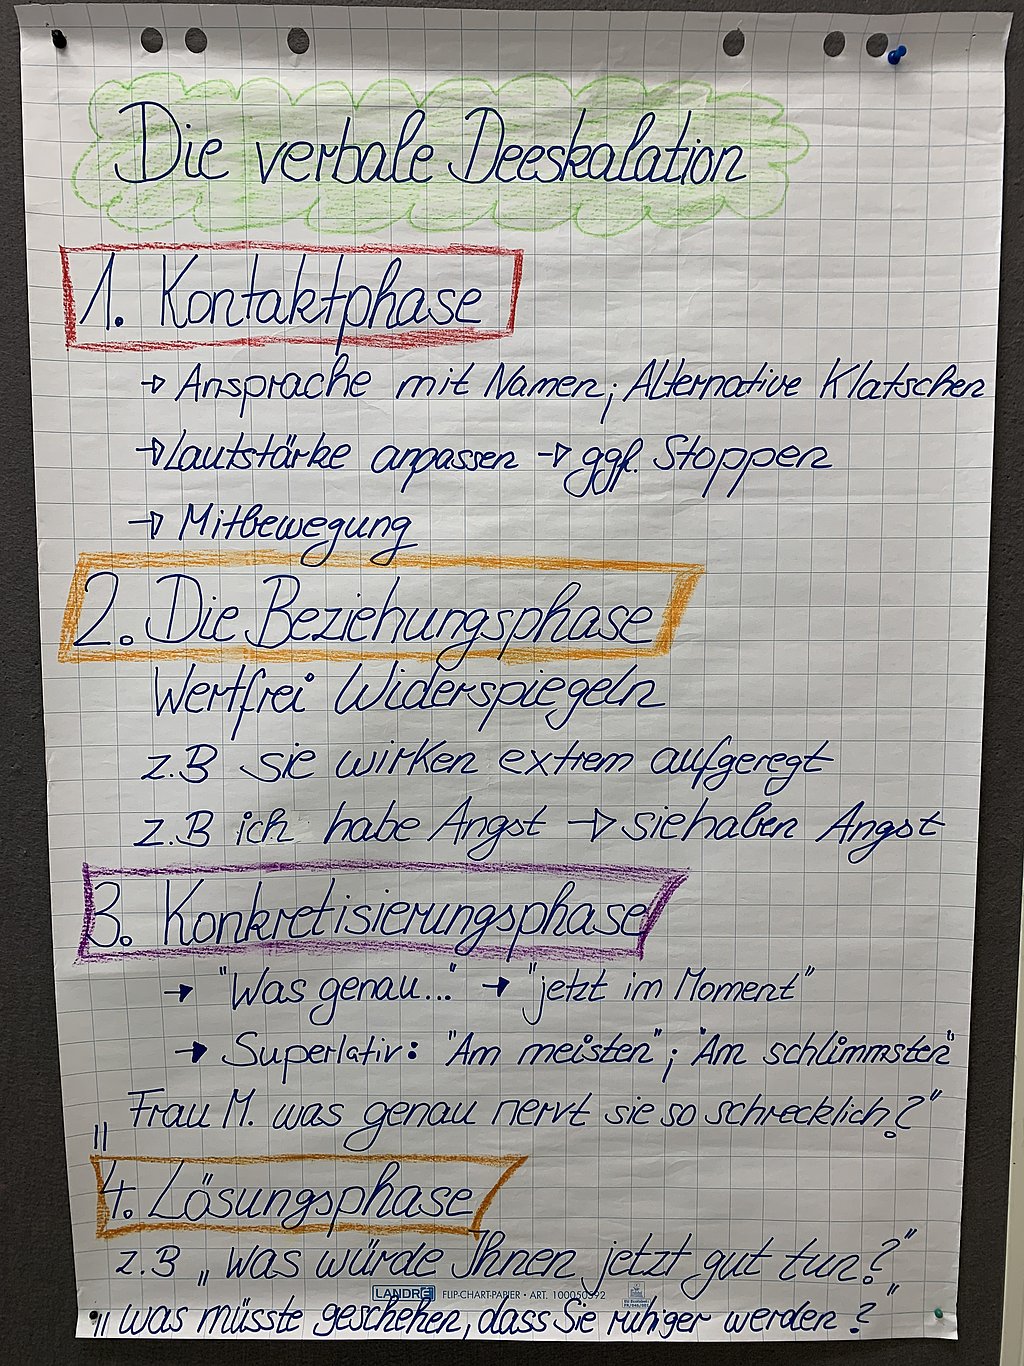 Die verbale Deeskalation
1. Kontaktphase
→ Ansprache mit Namen; Alternative Klatschen
→ Lautstärke anpassen → ggf. Stoppen
→ Mitbewegung
2. Die Beziehungsphase
Wertfrei Widerspiegeln
z.B sie wirken extrem aufgeregt
z.B ich habe Angst → sie haben Angst
3. Konkretisierungsphase
→ "Was genau..." → "jetzt im Moment"
→ Superlativ: "Am meisten"; "Am schlimmsten"
„Frau M. was genau nervt sie so schrecklich?"
4. Lösungsphase
z.B „was würde Ihnen jetzt gut tun?"
LANDRÉ FLIP-CHART-PAPIER • ART. 100050592
„was müsste geschehen, dass Sie ruhiger werden?"